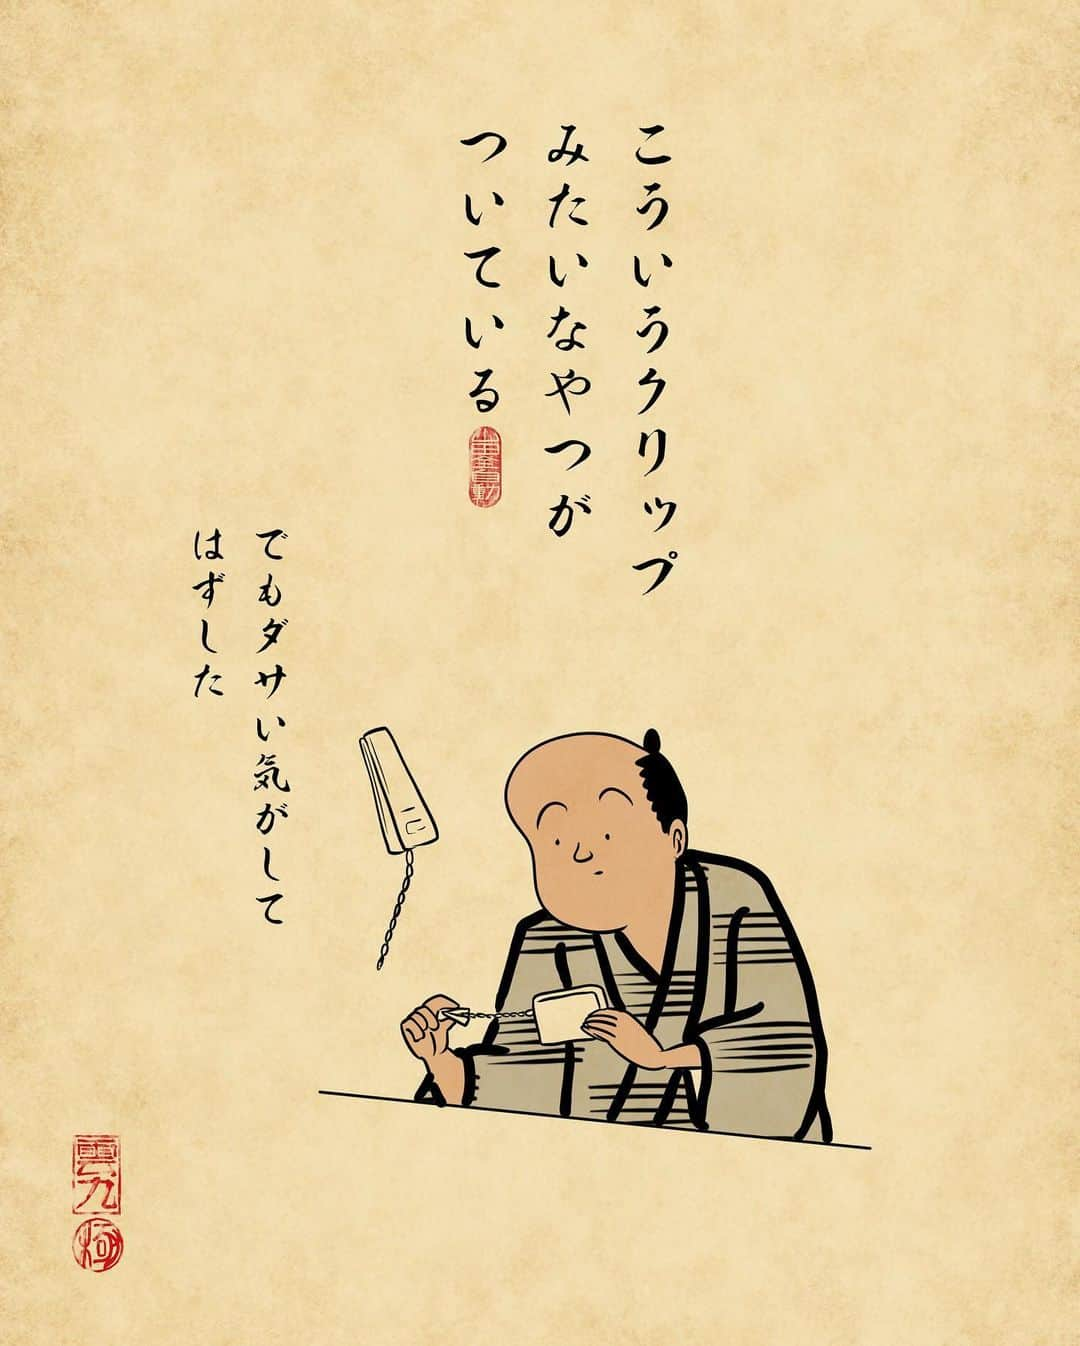 こういうクリップ
みたいなやつが
ついている
でもダサい気がして
はずした